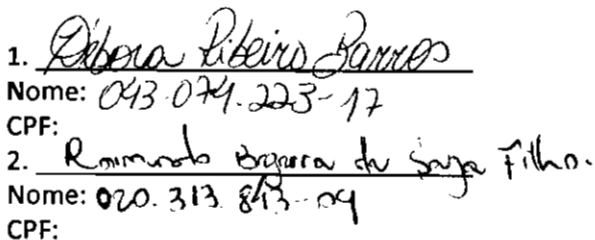 1. Débora Ribeiro Barros
Nome: 043.074.223-17
CPF:
2. Raimundo de Souza Filho.
Nome: 020.313.843-09
CPF: